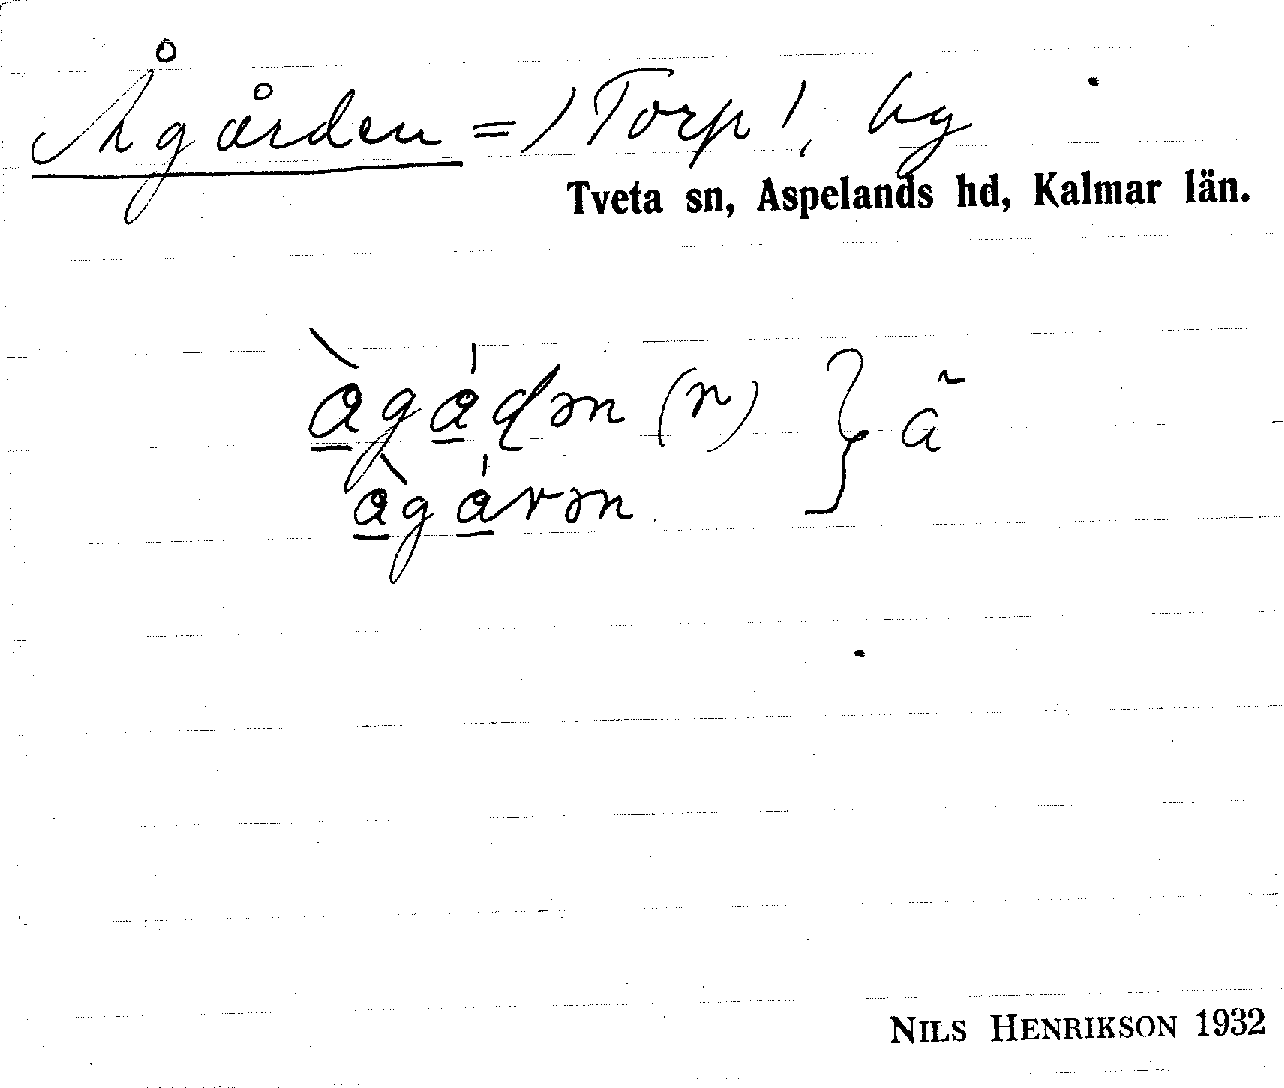 Ågården = / Torp /, by
Tveta sn, Aspelands hd, Kalmar län.
àgáɖən (n) } ã
àgárən
NILS HENRIKSON 1932